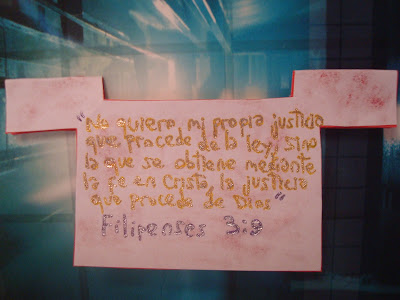 "No quiero mi propia justicia
que procede de la ley, sino
la que se obtiene mediante
la fe en Cristo, la justicia
que procede de Dios"
Filipenses 3:9